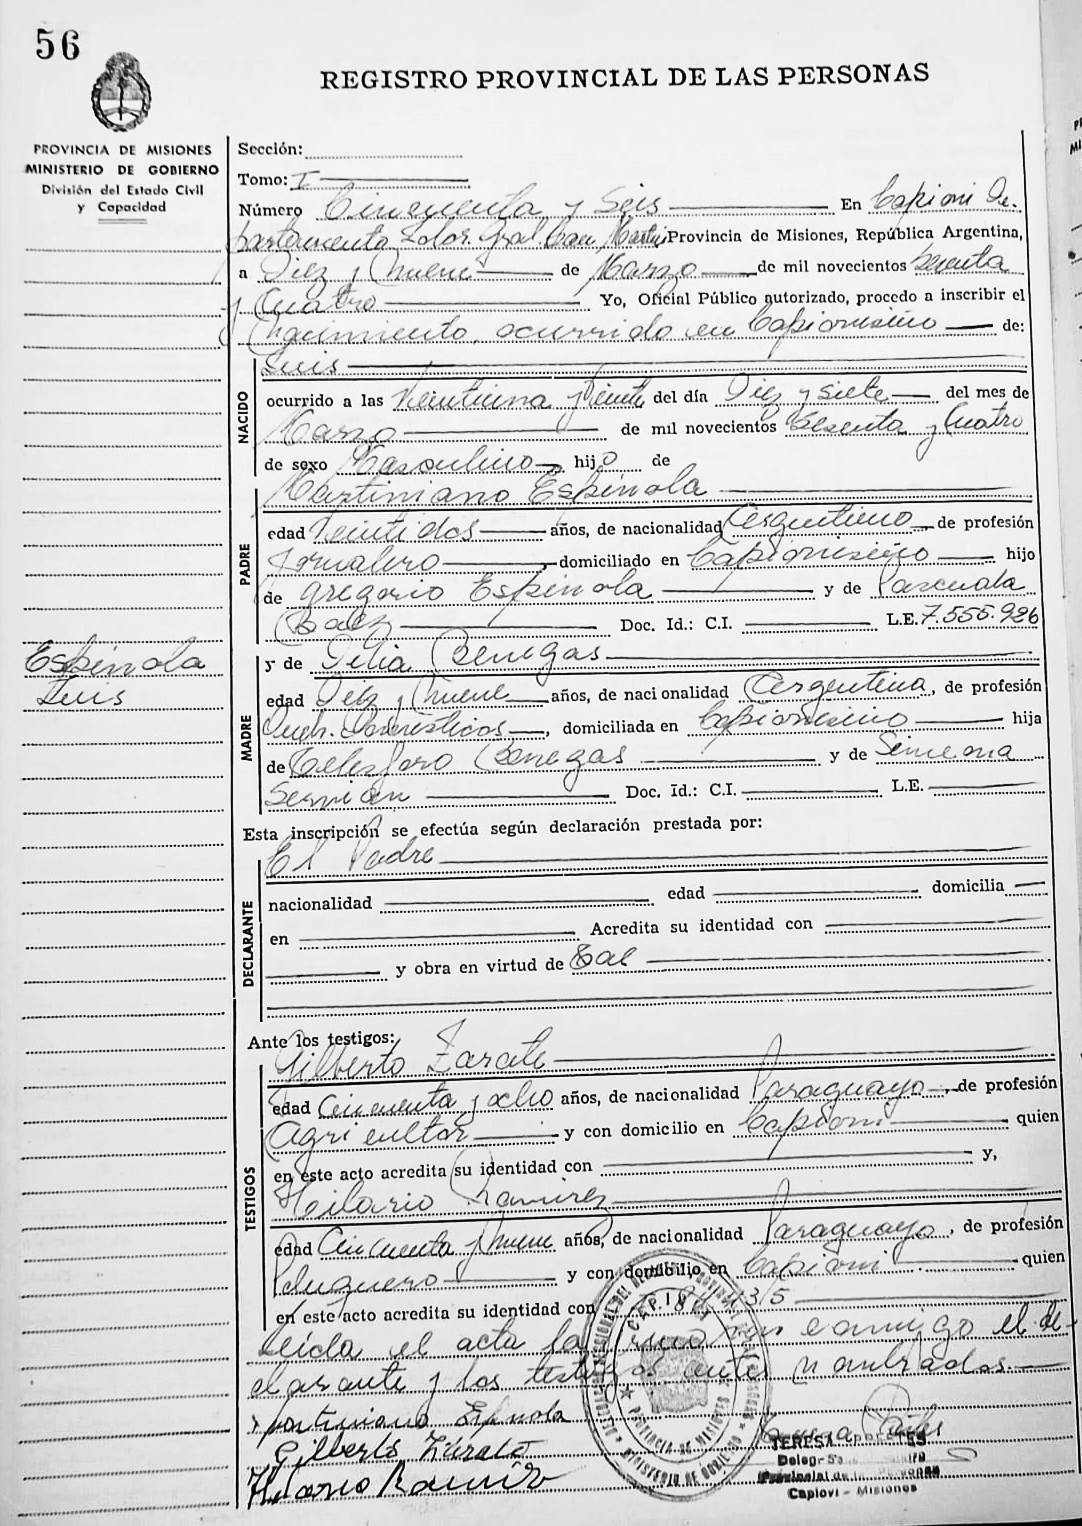 56
REGISTRO PROVINCIAL DE LAS PERSONAS
PROVINCIA DE MISIONES
MINISTERIO DE GOBIERNO
División del Estado Civil
y Capacidad
Sección:
Tomo: I
Número Cincuenta y Seis En Capioni De-
partamento Ldor. Gral. San Martin Provincia de Misiones, República Argentina,
a Diez y Nueve de Marzo de mil novecientos Sesenta
y Cuatro Yo, Oficial Público autorizado, procedo a inscribir el
Nacimiento, ocurrido en Capionisiño de:
NACIDO
Luis
ocurrido a las Veintiuna y Veinte del día Diez y Siete del mes de
Marzo de mil novecientos Sesenta y Cuatro
de sexo Masculino hijo de
PADRE
Martiniano Espinola
edad Veintidos años, de nacionalidad Argentino, de profesión
Jornalero, domiciliado en Capionisiño hijo
de Gregorio Espinola y de Pascuala
Baez Doc. Id.: C.I. L.E. 7.555.926
Espinola
Luis
MADRE
y de Delia Benegas
edad Diez y Nueve años, de nacionalidad Argentina, de profesión
Queh. Domésticos, domiciliada en Capionisiño hija
de Telesforo Benegas y de Simeona
Servian Doc. Id.: C.I. L.E.
Esta inscripción se efectúa según declaración prestada por:
DECLARANTE
El Padre
nacionalidad edad domicilia
en Acredita su identidad con
y obra en virtud de Tal
Ante los testigos:
TESTIGOS
Gilberto Zarate
edad Cincuenta y ocho años, de nacionalidad Paraguayo, de profesión
Agricultor y con domicilio en Capioni quien
en este acto acredita su identidad con y,
Hilario Ramirez
edad Cincuenta y Nueve años, de nacionalidad Paraguayo, de profesión
y con domicilio en Capioni quien
en este acto acredita su identidad con
Leida el acta la firman conmigo el de-
clarante y los testigos antes nombrados
Martiniano Espinola
Gilberto Zárate
Hilario Ramirez
CAPIOVI
PROVINCIA DE MISIONES
MINISTERIO DE GOBIERNO
TERESA
Provincial de las Personas
Capiovi - Misiones